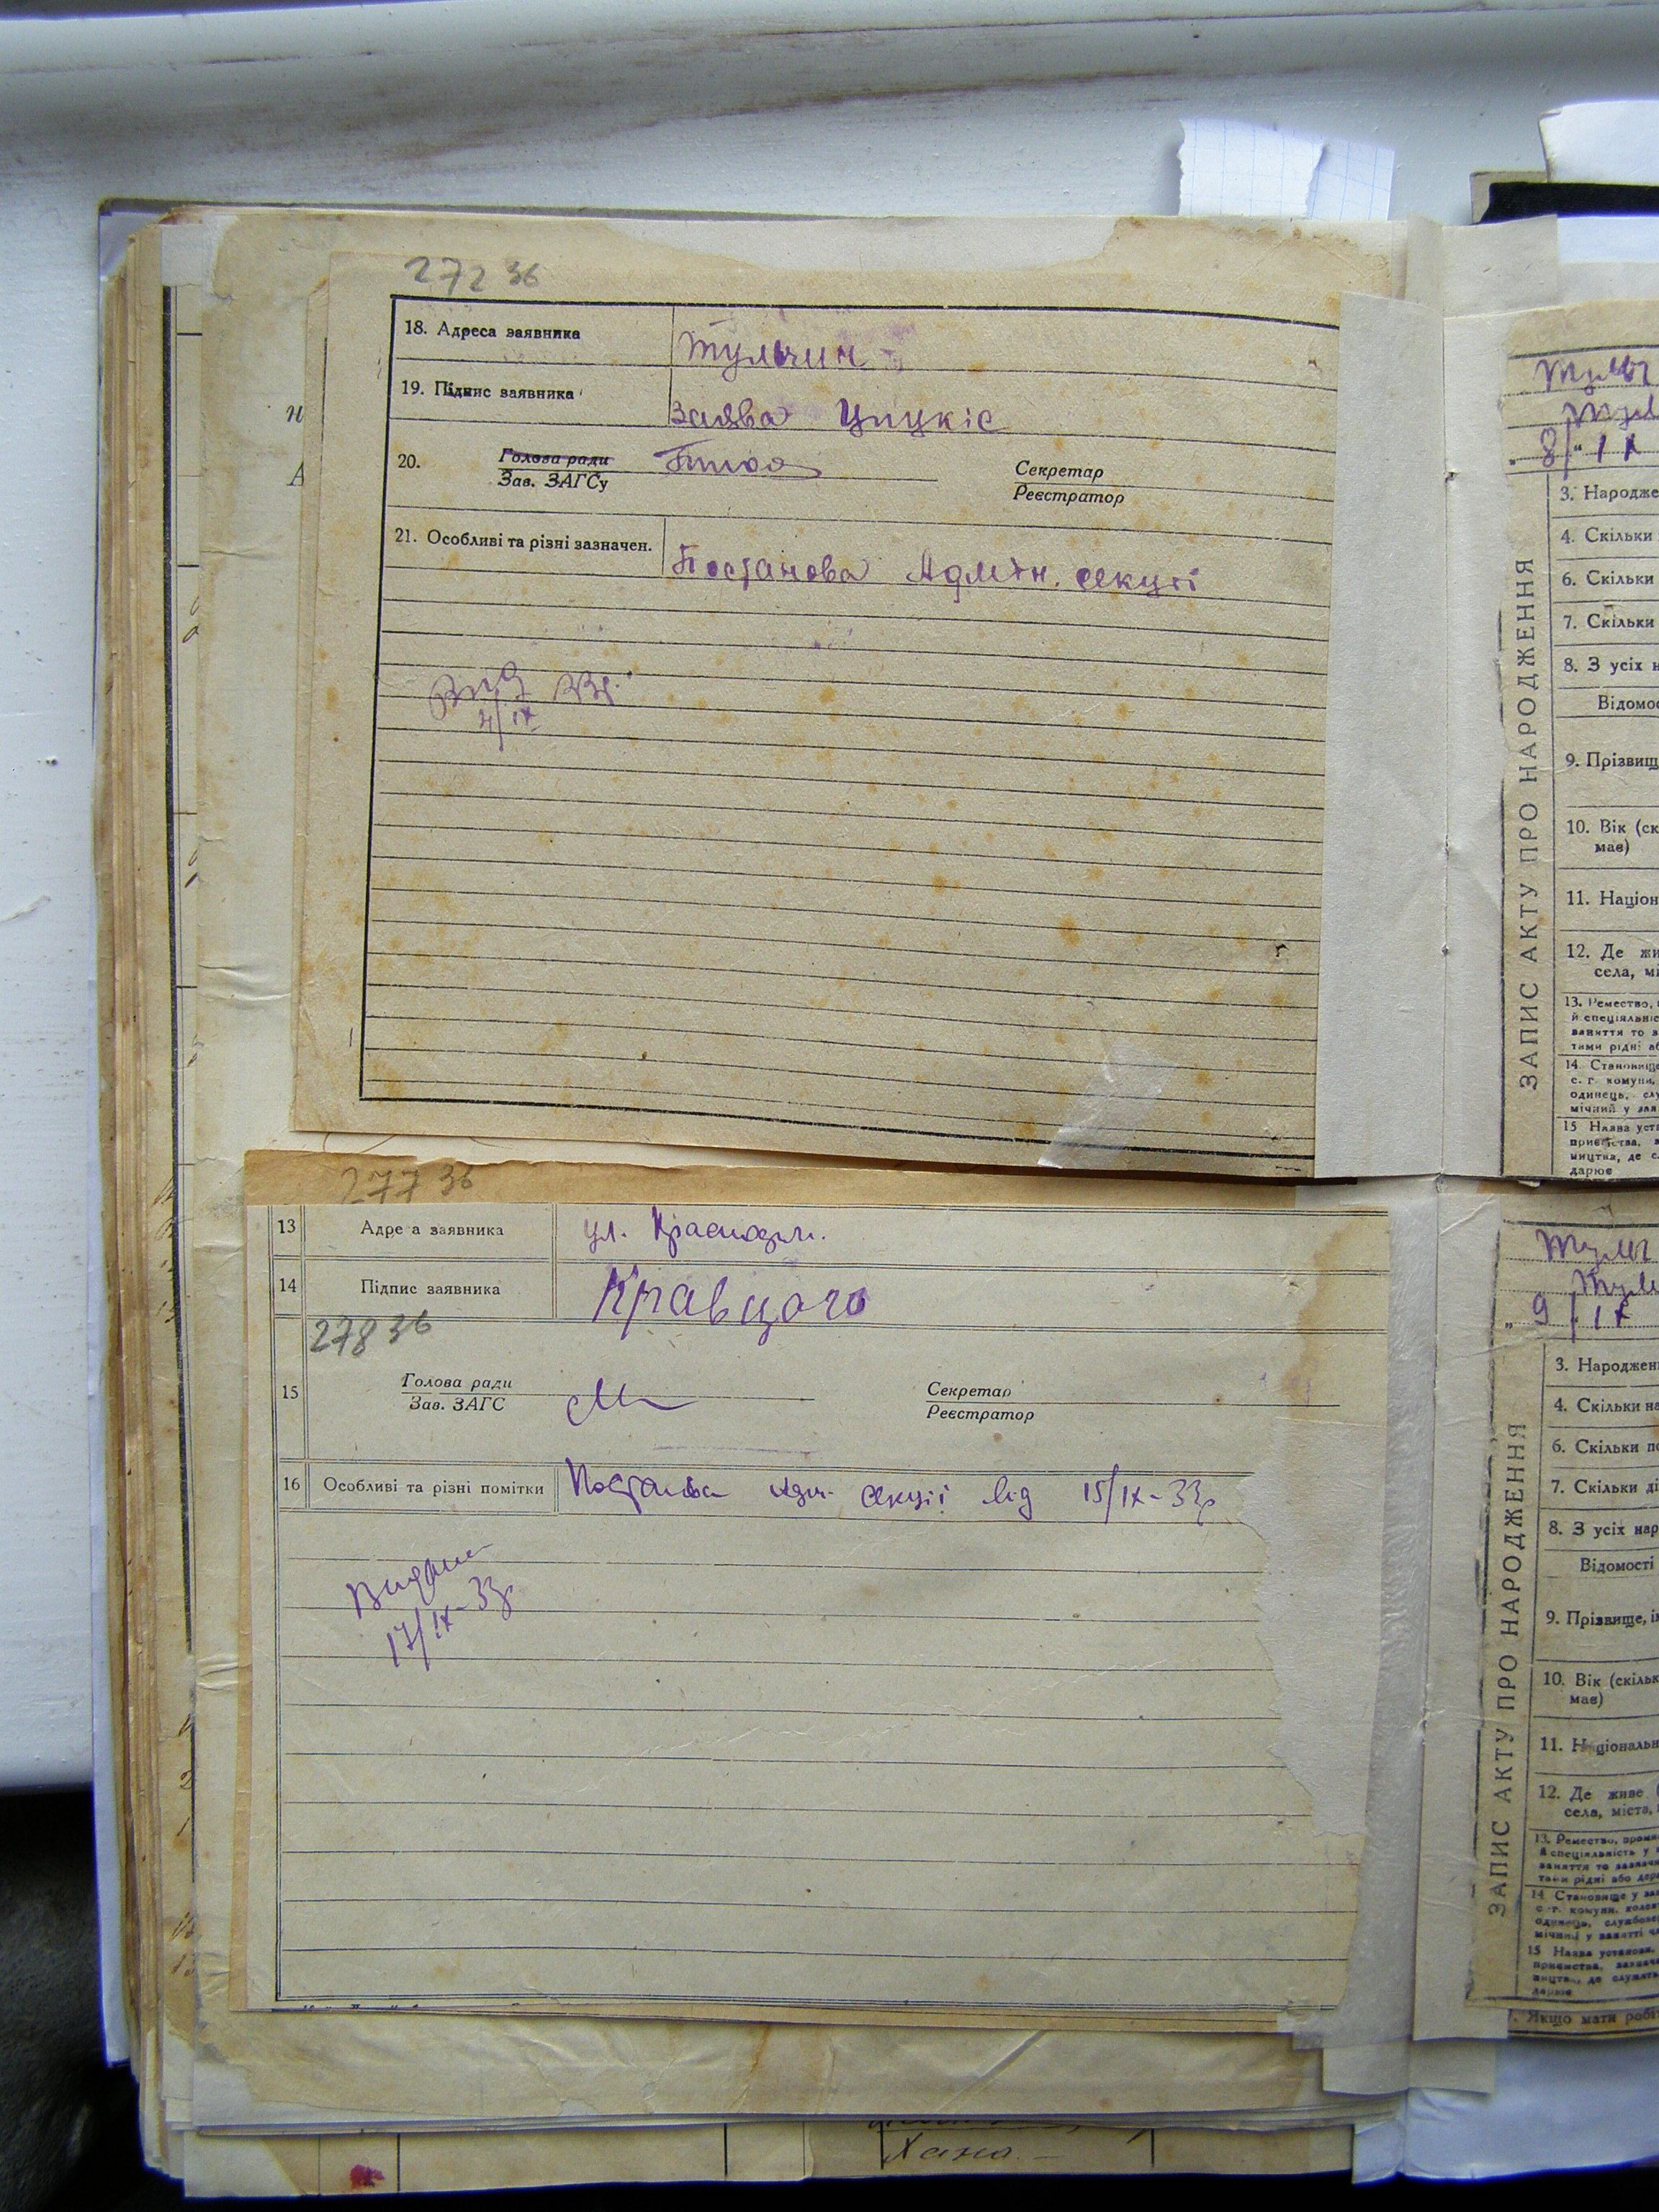 272 36
18. Адреса заявника Тульчин
19. Підпис заявника Заява
20. Голова ради
Зав. ЗАГСу
Секретар
Реєстратор
21. Особливі та різні зазначен. Постанова Адмін. секції
4/IX
277 36
13 Адре а заявника ул. Красноарм.
14 Підпис заявника Кравцова
278 36
15 Голова ради
Зав. ЗАГС
Секретар
Реєстратор
16 Особливі та різні помітки Постанова Адм. секції від 15/IX-33р
Видано
17/IX-33р
Хана
Тульч
8/IX
ЗАПИС АКТУ ПРО НАРОДЖЕННЯ
3. Народже
4. Скільки
6. Скільки
7. Скільки
8. З усіх н
Відомос
9. Прізвищ
10. Вік (ск
має)
11. Націон
12. Де жи
села, мі
13. Ремество,
й спеціяльніс
заняття то з
тами рідні аб
14. Становище
с. г. комуни,
одинець, слу
мічний у зая
15 Назва уста
приємства, в
ництва, де с
дарює
Тульч
Тульч
„ 9/IX
ЗАПИС АКТУ ПРО НАРОДЖЕННЯ
3. Народжен
4. Скільки на
6. Скільки по
7. Скільки ді
8. З усіх нар
Відомості
9. Прізвище, ім
10. Вік (скільк
має)
11. Національн
12. Де живе
села, міста,
13. Ремество, пром
й спеціяльність у
заняття то зазначи
тами рідні або дер
14 Становище у за
с.-г. комуни, колек
одинець, службове
мічний у занятті ч
15 Назва установи,
приємства, зазнач
ництва, де служит
дарює
Якщо мати робі